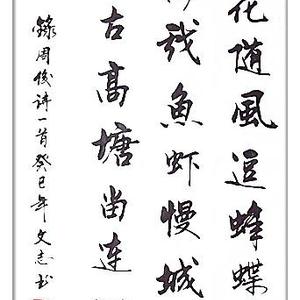 花随风逗蜂蝶
我鱼虾慢城
古高塘尚连
录周俊诗一首癸巳年文志书